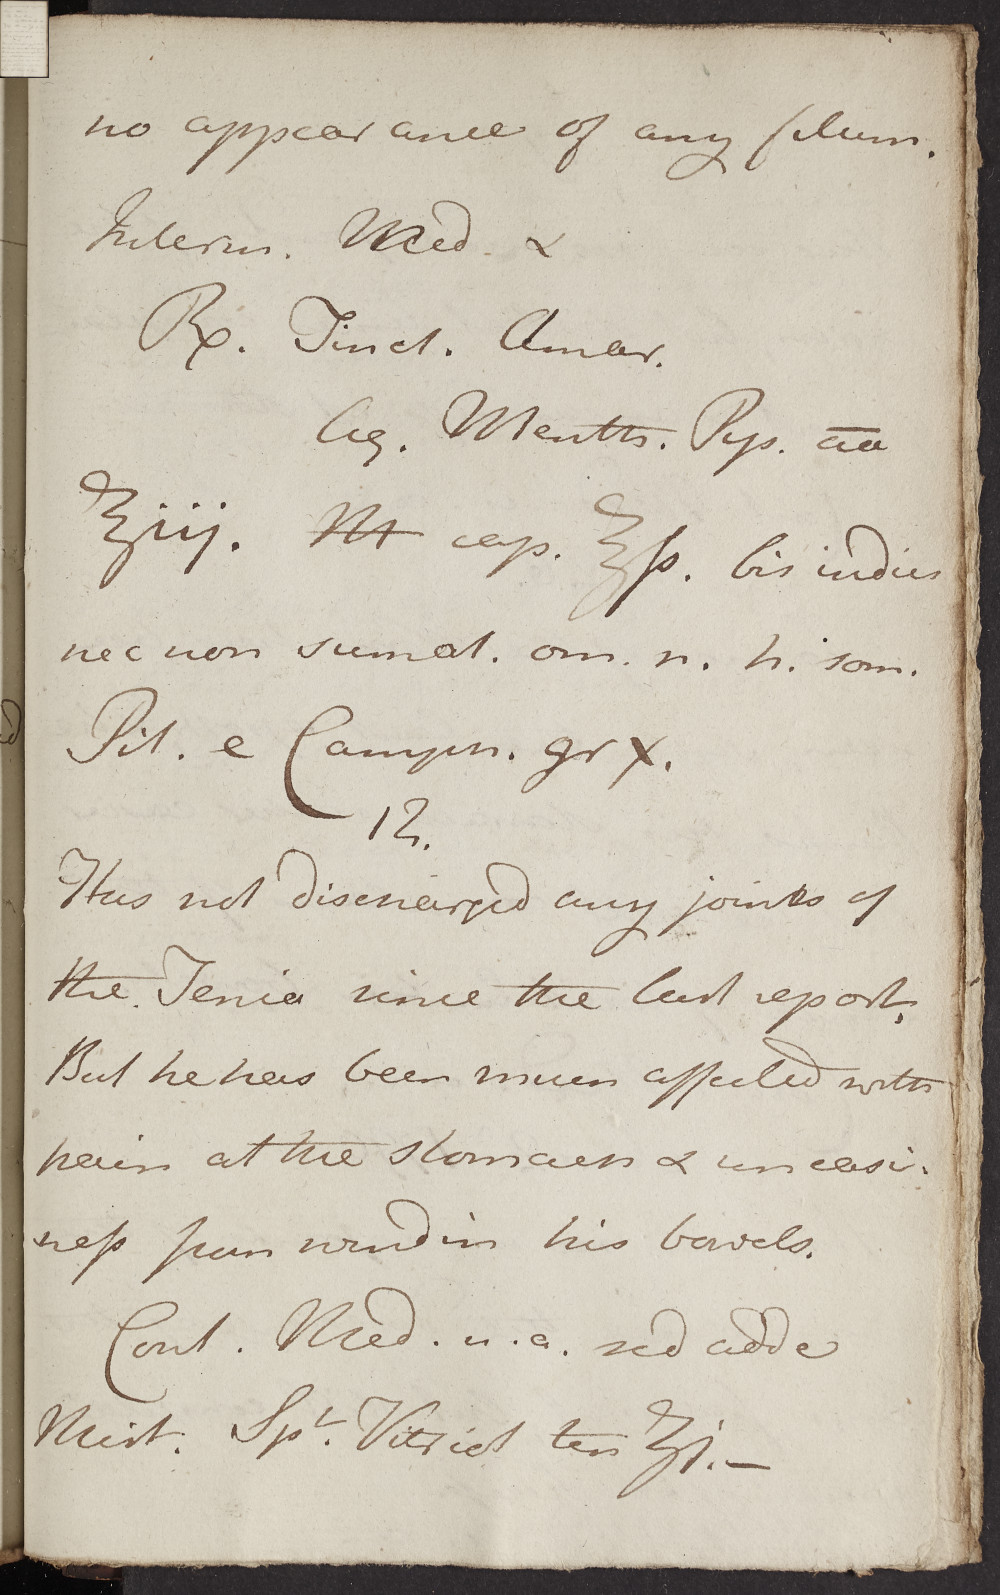 no appearance of any filum.
Interm. Med. &
Rx. Tinct. Amar.
Aq. Menth. Pip. aa
℥iij. M cap. ℥ß. bis indies
nec non sumat. om. n. h. som.
Pil. e Camph. gr x.
12.
Has not discharged any joints of
the Tenia since the last report,
But he has been much affected with
pain at the stomach & uneasi-
neſs from wind in his bowels.
Cont. Med. u.a. sed adde
Mist. Spt. Vitriol ten ʒj. —